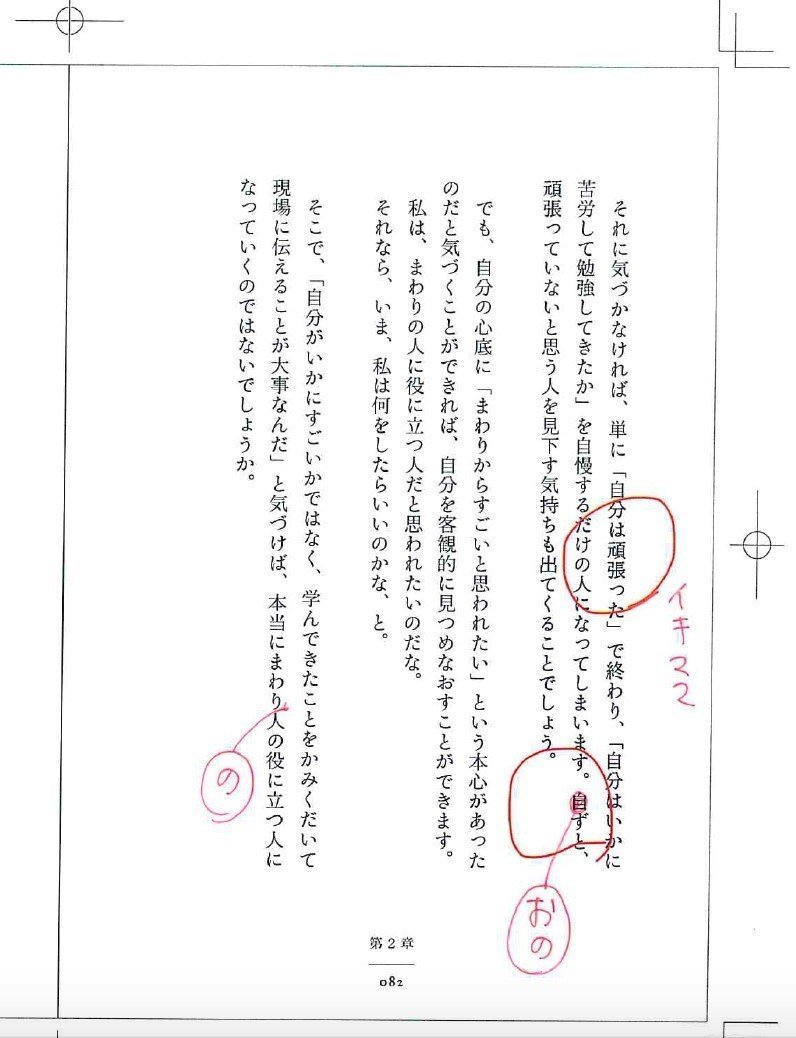 それに気づかなければ、単に「自分は頑張った」で終わり、「自分はいかに
苦労して勉強してきたか」を自慢するだけの人になってしまいます。自ずと、
頑張っていないと思う人を見下す気持ちも出てくることでしょう。
でも、自分の心底に「まわりからすごいと思われたい」という本心があった
のだと気づくことができれば、自分を客観的に見つめなおすことができます。
私は、まわりの人に役に立つ人だと思われたいのだな。
それなら、いま、私は何をしたらいいのかな、と。
そこで、「自分がいかにすごいかではなく、学んできたことをかみくだいて
現場に伝えることが大事なんだ」と気づけば、本当にまわり人の役に立つ人に
なっていくのではないでしょうか。
イキママ
おの
の
第2章
082